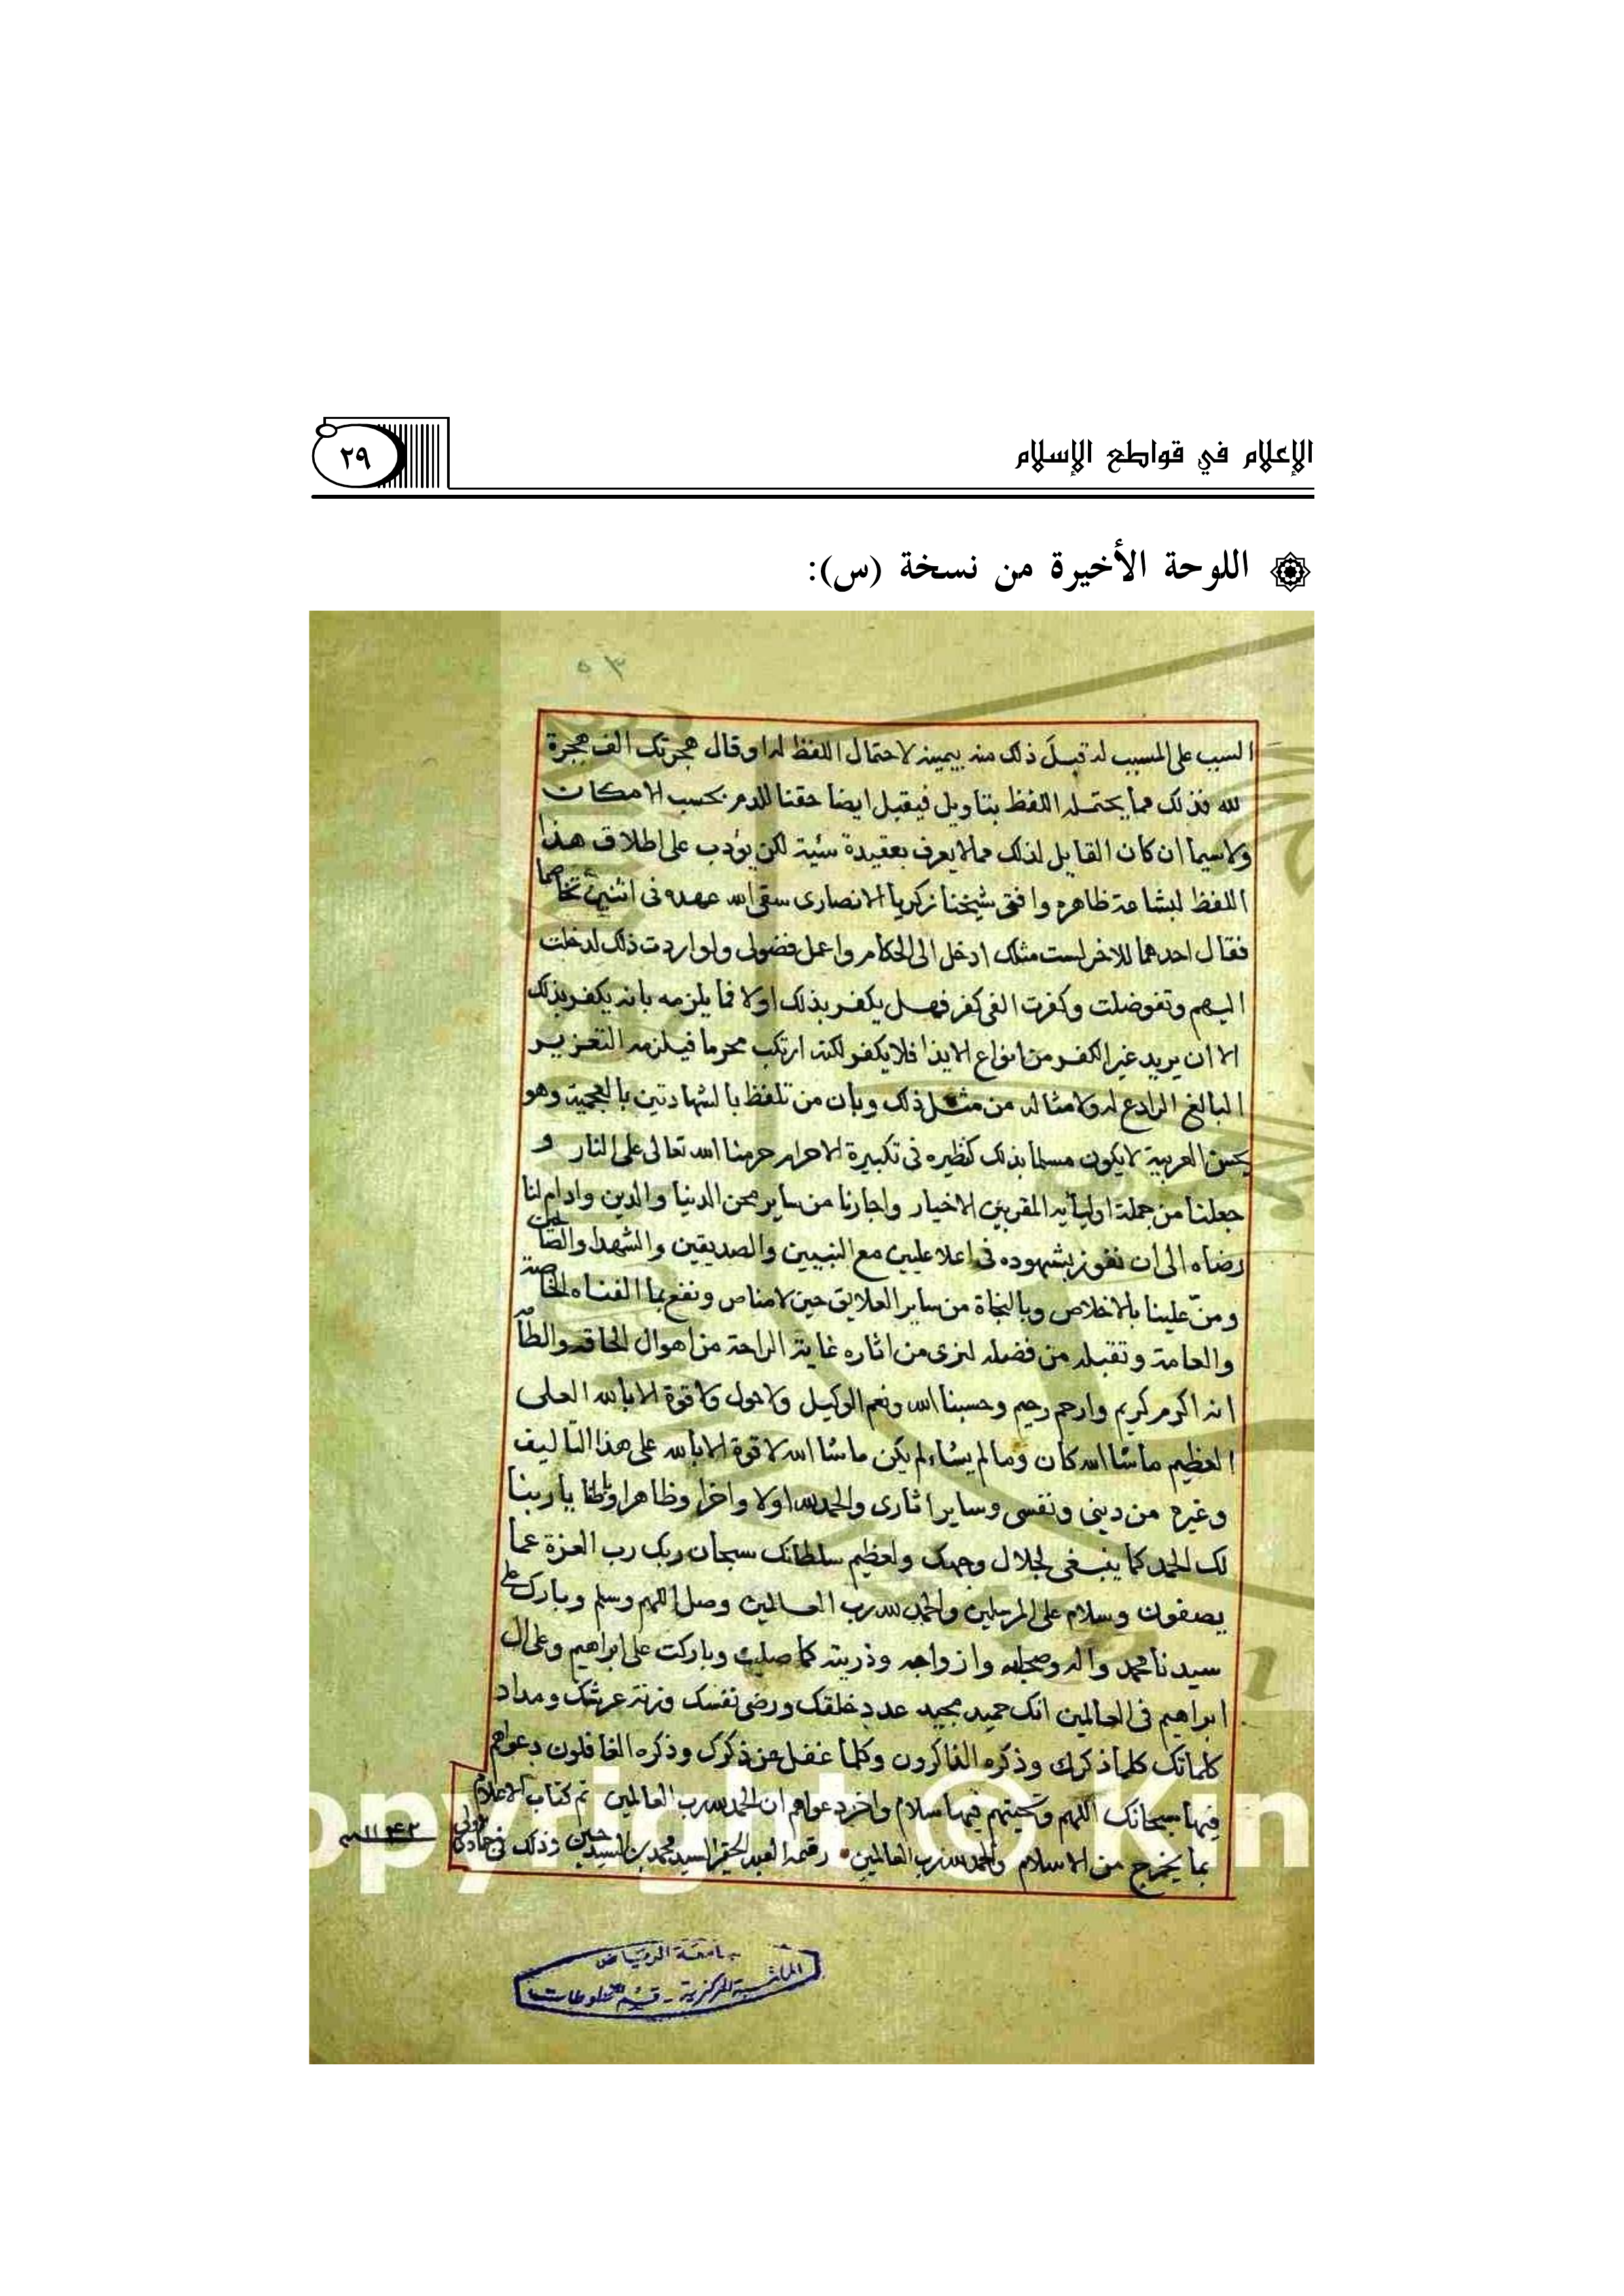 الإعلام في قواطع الإسلام
٢٩
اللوحة الأخيرة من نسخة (س):
٥٣
السبب على المسبب له قبل ذلك منه بيمينه لاحتمال اللفظ له او قال هجرتك الف هجرة
لله فذلك مما يحتمله اللفظ بتاويل فيقبل ايضا حقنا للدم بحسب الامكان
ولاسيما ان كان القايل لذلك ممالا يعرف بعقيدة سئية لكن يؤدب على اطلاق هذا
اللفظ لبشاعة ظاهره وافتى شيخنا زكريا الانصارى سقى الله عهده فى اثنين تخاصما
فقال احدهما للاخر لست مثلك ادخل الى الحكام واعمل فضولى ولو اردت ذلك لدخلت
اليهم وتفوضلت وكفرت الفى كفر فهل يكفر بذلك اولا فما يلزمه بانه يكفر بذلك
الا ان يريد غير الكفر من انواع الايذا فلا يكفر لكنه ارتكب محرما فيلزمه التعزير
البالغ الرادع له ولامثاله من مثل ذلك وبان من تلفظ بالشهادتين بالعجمية وهو
يحسن العربية لا يكون مسلما بذلك كنظيره فى تكبيرة الاحرام حرمنا الله تعالى على النار و
جعلنا من جملة اوليائه المقربين الاخيار واجارنا من ساير محن الدنيا والدين وادام لنا
رضاه الى ان نفوز بشهوده فى اعلا عليين مع النبيين والصديقين والشهدا والصالحين
ومنّ علينا بالاخلاص وبالنجاة من ساير العلايق حين لا مناص ونفع بما الفناه الخاصة
والعامة وتقبله من فضله لنرى من اثاره غاية الراحة من اهوال الحاقه والطامه
انه اكرم كريم وارحم رحيم وحسبنا الله ونعم الوكيل ولاحول ولا قوة الا بالله العلى
العظيم ماشا الله كان وما لم يشاء لم يكن ماشا الله لا قوة الا بالله على هذا التاليف
وغيره من دينى ونفسى وساير اثارى والحمد لله اولا واخرا وظاهرا وباطنا يا ربنا
لك الحمد كما ينبغى لجلال وجهك ولعظيم سلطانك سبحان ربك رب العزة عما
يصفون وسلام على المرسلين والحمد لله رب العالمين وصل اللهم وسلم وبارك على
سيدنا محمد واله وصحابه وازواجه وذريته كما صليت وباركت على ابراهيم وعلى ال
ابراهيم فى العالمين انك حميد مجيد عدد خلقك ورضى نفسك وزنة عرشك ومداد
كلماتك كلما ذكرك وذكره الذاكرون وكلما غفل عن ذكرك وذكره الغافلون دعواهم
فيها سبحانك اللهم وتحيتهم فيها سلام واخر دعواهم ان الحمد لله رب العالمين تم كتاب الاعلام
بما يخرج من الاسلام والحمد لله رب العالمين رقمه العبد الحقير السيد محمد بن السيد حسين وذلك فى جمادى الاولى
opyright © Kin
جامعة الرياض
المكتبة المركزية - قسم المخطوطات